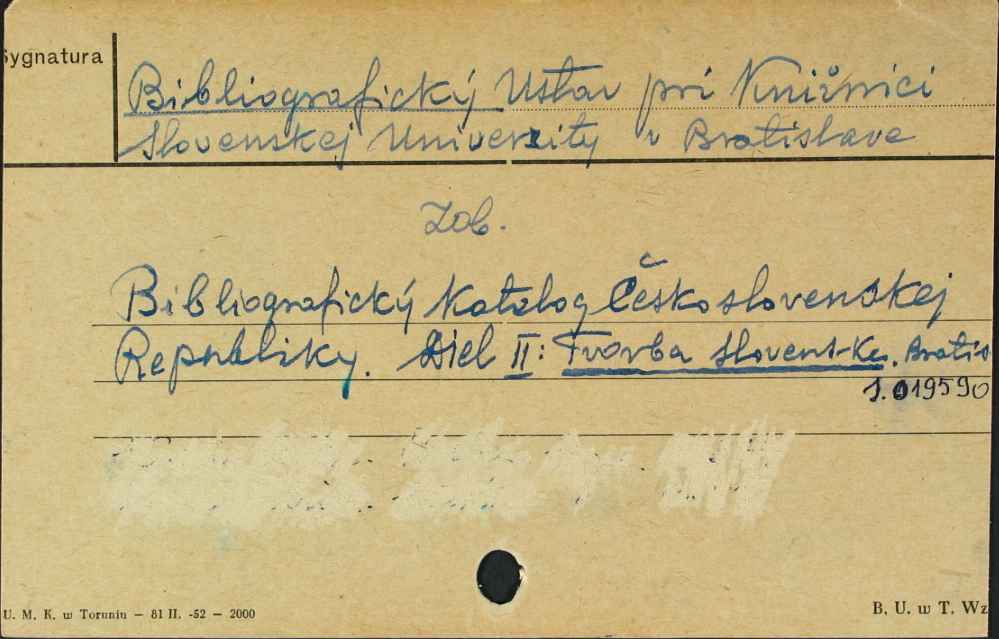 Sygnatura
Bibliografický Ustav pri Knižnici
Slovenskej Univerzity v Bratislave
Zob.
Bibliografický Katalog Československej
Republiky. Diel II: Tvorba Slovenská. Bratis
J.019590
U. M. K. w Toruniu – 81 II. -52 – 2000
B. U. w T. Wz